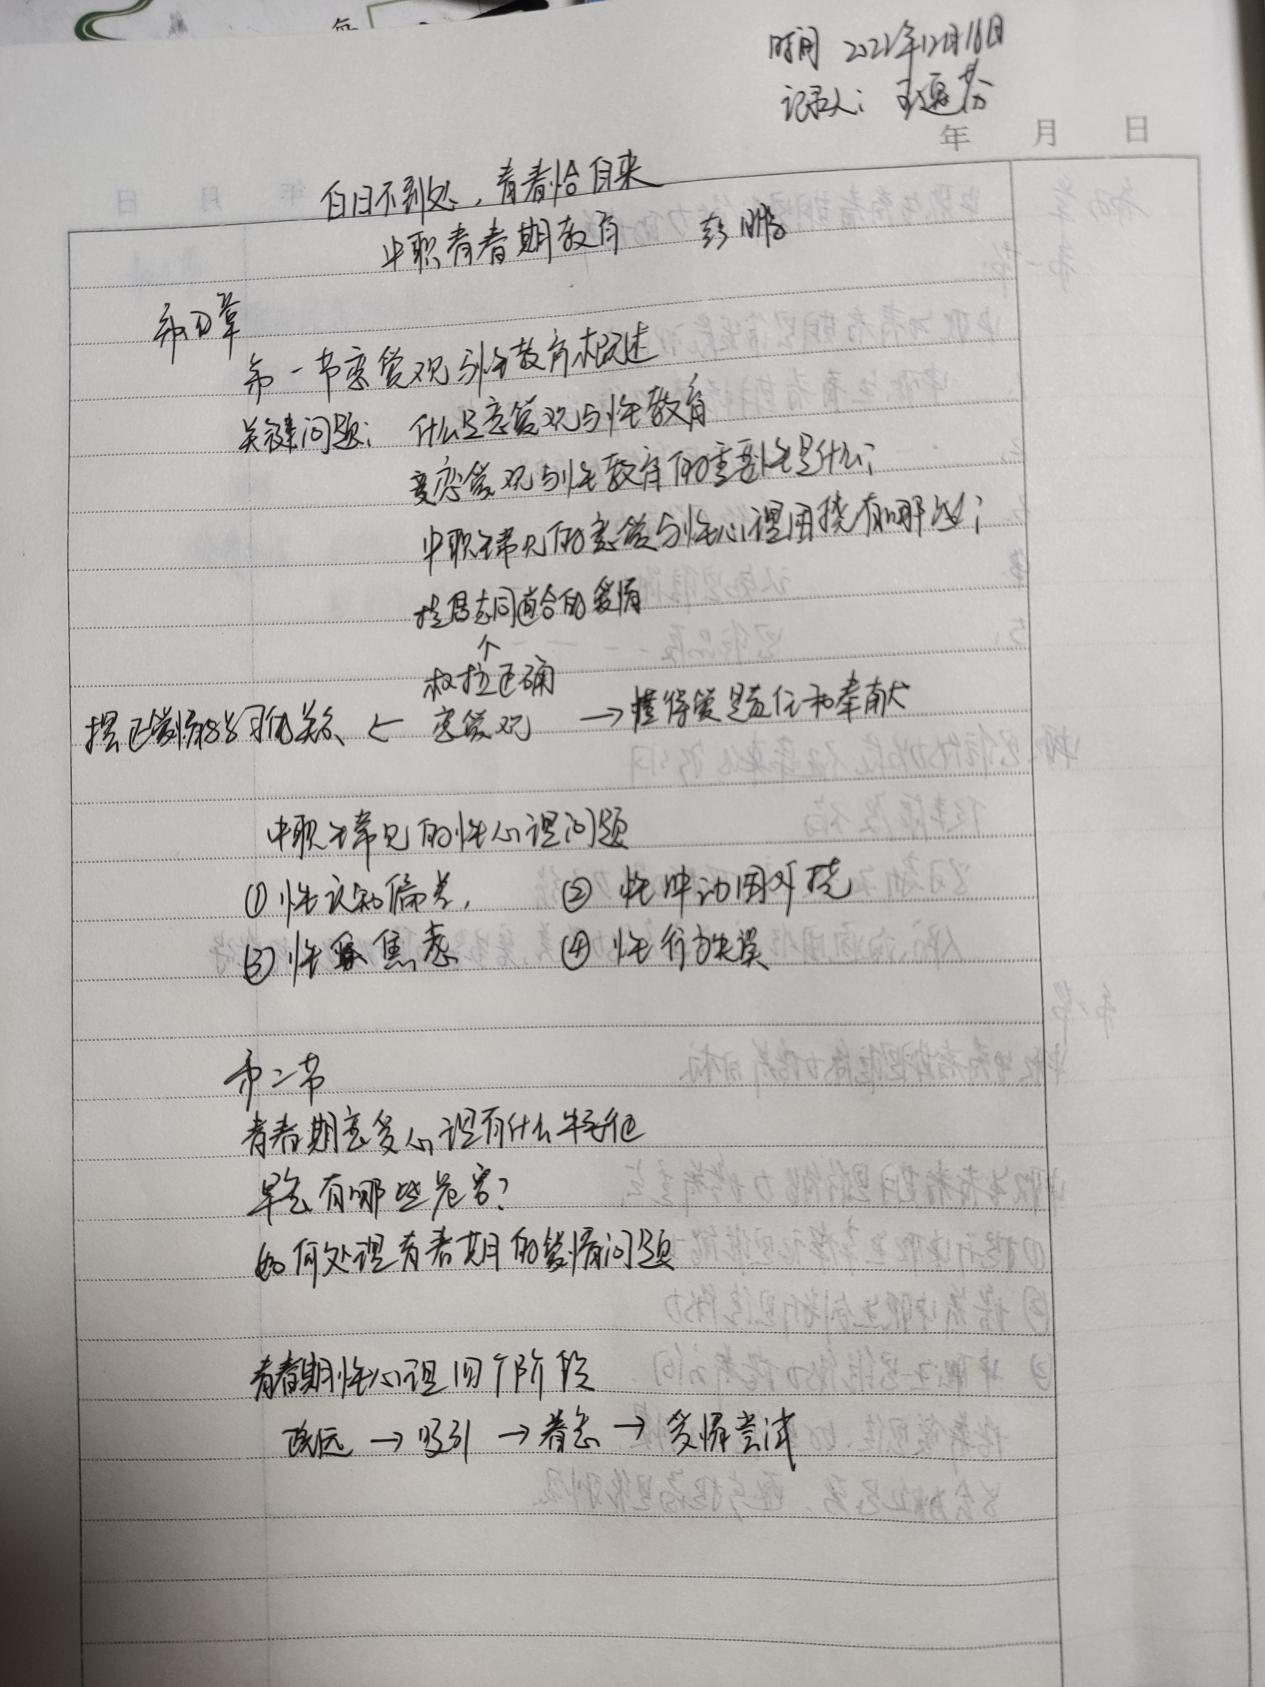 时间 2022年12月16日
记录人：王
年 月 日
白日不到处，青春恰自来
中职青春期教育 彭鹏
第四章
第一节恋爱观与性教育概述
关键问题：什么是恋爱观与性教育
恋爱观与性教育的重要性是什么；
中职生常见的恋爱与性心理困扰有哪些；
提倡志同道合的爱情
↑
树立正确
摆正爱情与学习的关系 ← 恋爱观 → 懂得爱是责任和奉献
中职生常见的性心理问题
① 性认知偏差， ② 性冲动困扰
③ 性焦虑 ④ 性行为失误
第二节
青春期恋爱心理有什么特征
早恋有哪些危害？
如何处理青春期的爱情问题
青春期性心理四个阶段
疏远 → 吸引 → 眷恋 → 爱情尝试